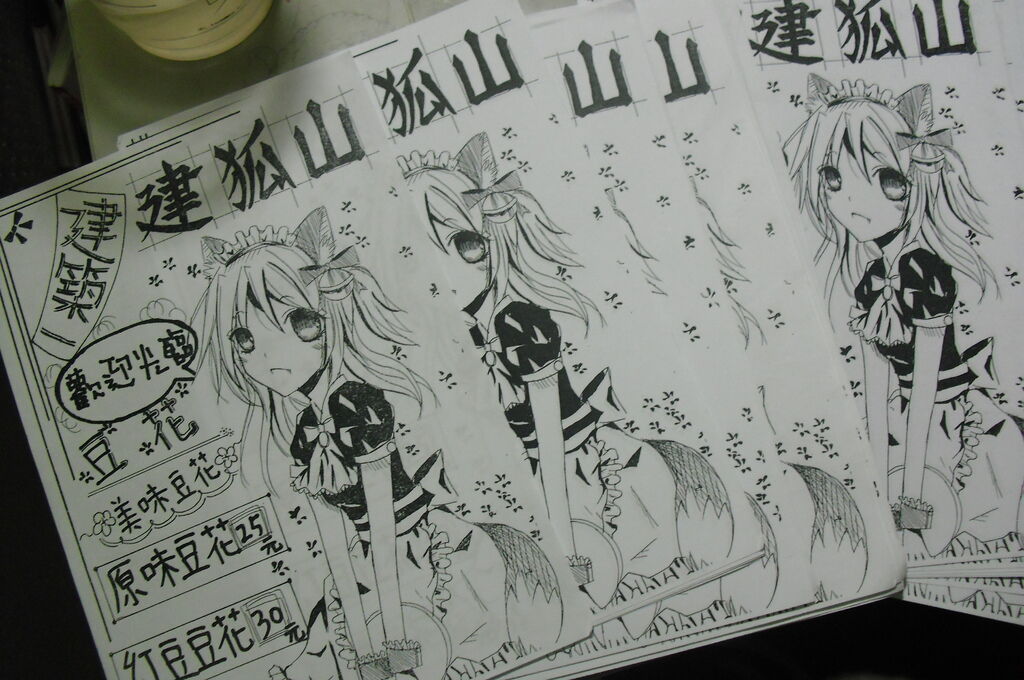 建狐山
建築
歡迎光臨
豆花
美味豆花
原味豆花25元
紅豆豆花30元
狐山
山
山
建狐山